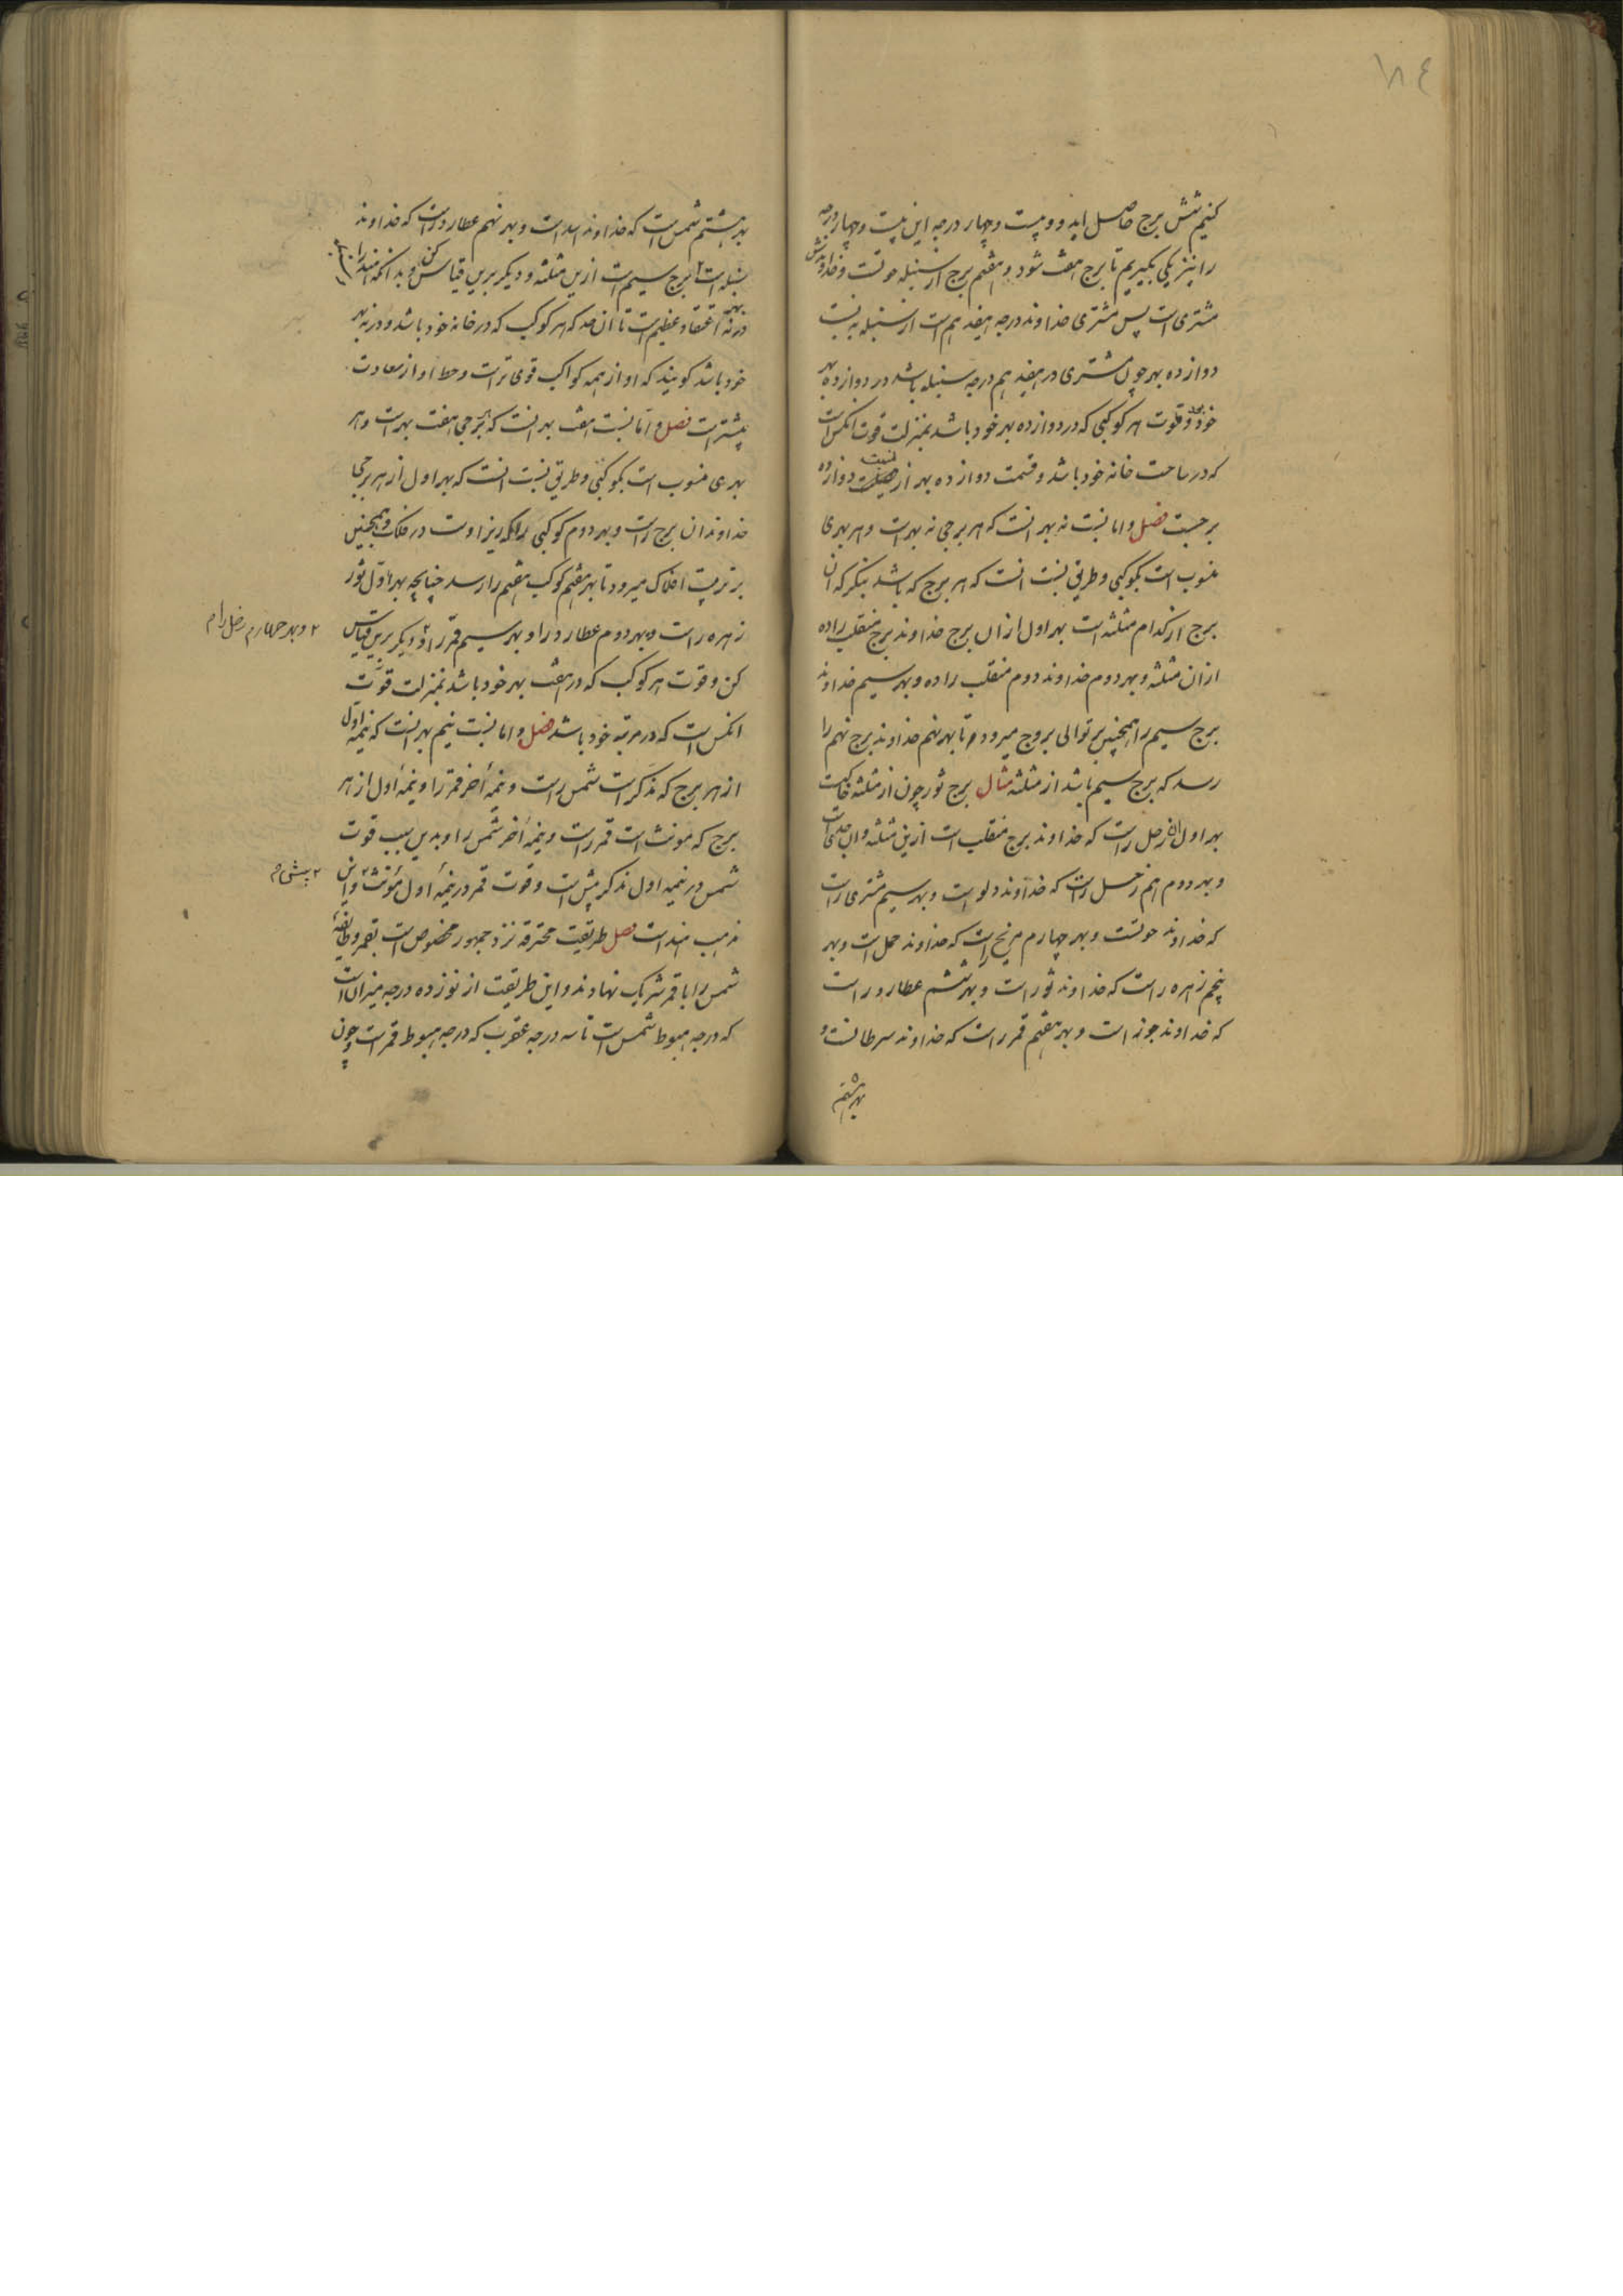 ۱۸٤
کنیم شش برج حاصل اید و بیست و چهار درجه این بیست و چهار درجه
را نیز یکی بگیریم تا برج هفت شود و هفتم برج از سنبله حوتست و خداوندش
مشتری است پس مشتری خداوند درجه هفدهم است از سنبله به نسبت
دوازده بهر چون مشتری در هفدهم درجه سنبله باشد در دوازده بهر
خود بود و قوت هر کوکبی که در دوازده بهر خود باشد بمنزلت قوت انکس است
که در ساحت خانه خود باشد و قسمت دوازده بهر از قسمت دوازده
برجست فصل و اما نسبت نه بهر انست که هر برجی نه بهر است و هر بهری
منسوب است بکوکبی و طریق نسبت انست که هر برج که باشد بنگر که ان
برج از کدام مثلثه است بهر اول ازان برج خداوند برج منقلب را ده
ازان مثلثه و بهر دوم خداوند دوم منقلب را ده و بهر سیم خداوند
برج سیم را همچنین بر توالی بروج میرود تا بهر نهم خداوند برج نهم را
رسد که برج سیم باشد از مثلثه مثال برج ثور چون از مثلثه خاکیست
بهر اول ان زحل راست که خداوند برج منقلب است ازین مثلثه وان جدی است
و بهر دوم هم زحل راست که خداوند دلو است و بهر سیم مشتری راست
که خداوند حوتست و بهر چهارم مریخ راست که خداوند حمل است و بهر
پنجم زهره راست که خداوند ثور است و بهر ششم عطارد راست
که خداوند جوزه است و بهر هفتم قمر راست که خداوند سرطانست و
بهر هشتم
بهر هشتم شمس است که خداوند اسد است و بهر نهم عطارد راست که خداوند
سنبله است ۲ برج سیم است ازین مثلثه و دیگر برین قیاس کن و بدانکه هند را
در نه بهر اعتقاد عظیم است تا ان حد که هر کوکب که در خانه خود باشد و در نه بهر
خود باشد گویند که او از همه کواکب قوی تر است و حظ او از سعادت
بیشتر است فصل و اما نسبت هفت بهر انست که هر برجی هفت بهر است و هر
بهری منسوب است بکوکبی و طریق نسبت انست که بهر اول از هر برجی
خداوند ان برج راست و بهر دوم کوکبی را که زیر اوست در فلک و همچنین
بر ترتیب افلاک میرود تا بهر هفتم کوکب هفتم را رسد چنانچه بهر اول ثور
زهره راست و بهر دوم عطارد را و بهر سیم قمر را ۲ و دیگر برین قیاس
۲ و بهر چهارم زحل را م
کن و قوت هر کوکب که در هفت بهر خود باشد بمنزلت قوت
انکس است که در مرتبه خود باشد فصل و اما نسبت نیم بهر انست که نیمه اول
از هر برج که مذکر است شمس راست و نیمه آخر قمر را و نیمه اول از هر
برج که مونث است قمر راست و نیمه آخر شمس را و بدین سبب قوت
شمس در نیمه اول مذکر بیش است و قوت قمر در نیمه اول مؤنث ۲ و این
۲ بیش م
مذهب هند است فصل طریقت محترقه نزد جمهور مخصوص است بقمر و طایفه
شمس را با قمر شریک نهادند و این طریقت از نوزده درجه میزان است
که درجه هبوط شمس است تا سه درجه عقرب که درجه هبوط قمر است و چون